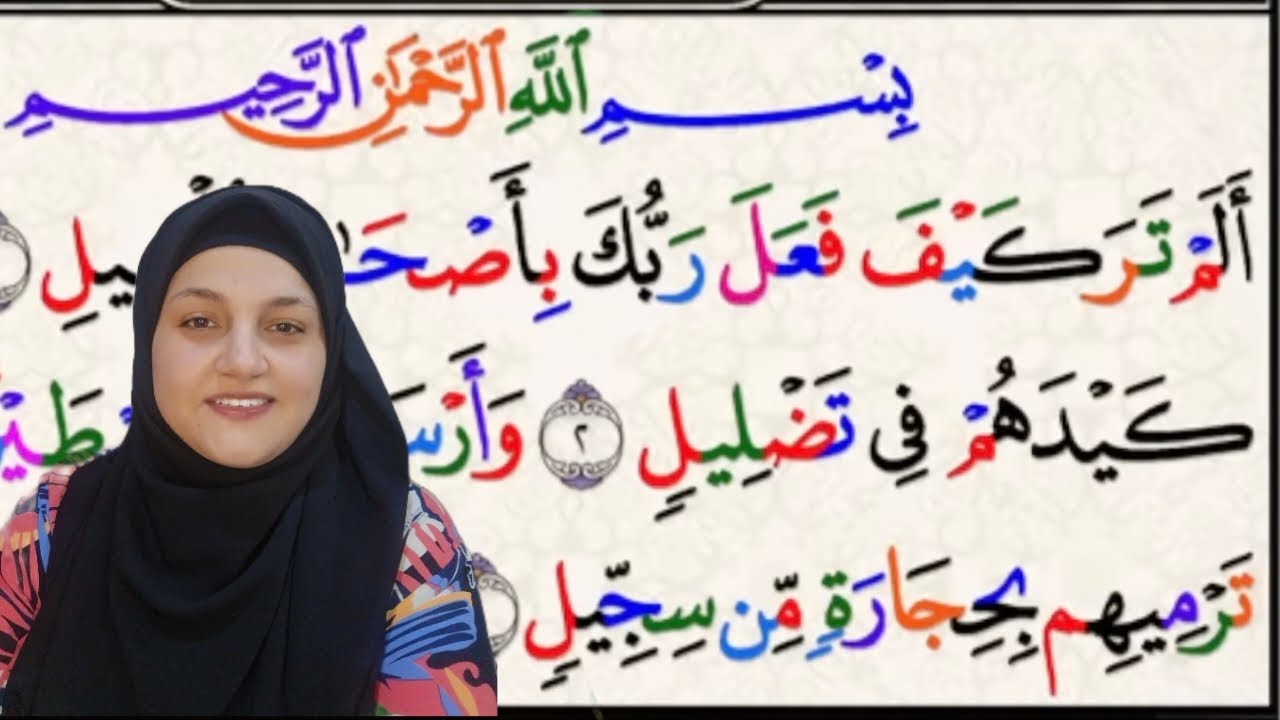 بِسْمِ ٱللَّهِ ٱلرَّحْمَٰنِ ٱلرَّحِيمِ
أَلَمْ تَرَ كَيْفَ فَعَلَ رَبُّكَ بِأَصْحَابِ الْفِيلِ
كَيْدَهُمْ فِي تَضْلِيلٍ ٢
تَرْمِيهِم بِحِجَارَةٍ مِّن سِجِّيلٍ